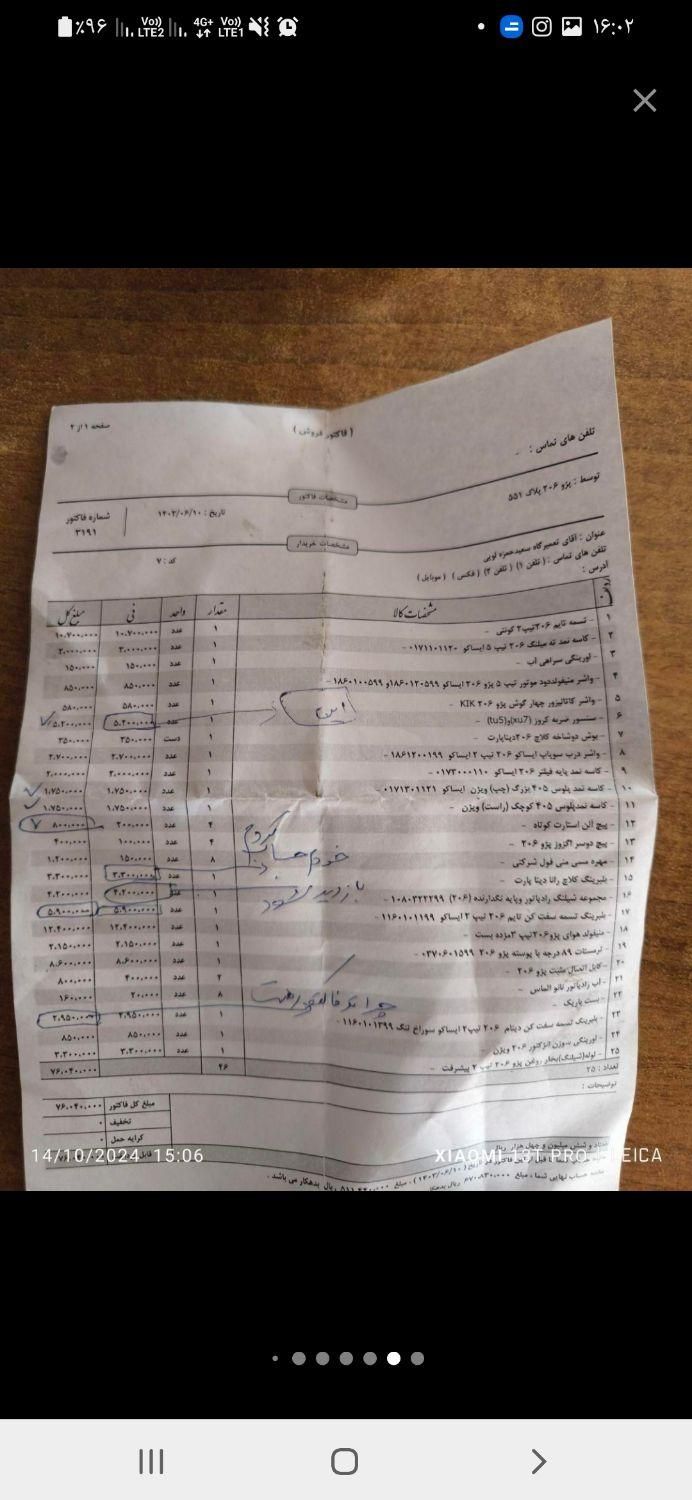 ٪۹۶ Vo)) LTE2 4G+ Vo)) LTE1 ۱۶:۰۲
( فاکتور فروش )
صفحه ۱ از ۲
تلفن های تماس : -
توسط : پژو ۲۰۶ پلاک ۵۵۱
مشخصات فاکتور
تاریخ : ۱۴۰۳/۰۶/۱۰
شماره فاکتور
۳۱۹۱
مشخصات خریدار
عنوان : آقای تعمیرگاه سعید حمزه لویی
کد : ۷
تلفن های تماس : ( تلفن ۱) ( تلفن ۲) ( فکس ) ( موبایل )
آدرس :
ردیف مشخصات کالا مقدار واحد فی مبلغ کل
۱ - تسمه تایم ۲۰۶ تیپ۲ کونتی - ۱ عدد ۱۰.۷۰۰.۰۰۰ ۱۰.۷۰۰.۰۰۰
۲ - کاسه نمد ته میلنگ ۲۰۶ تیپ ۵ ایساکو ۰۱۷۱۱۰۱۱۲۰ - ۱ عدد ۲.۰۰۰.۰۰۰ ۲.۰۰۰.۰۰۰
۳ - اورینگی سراهی آب - ۱ عدد ۱۵۰.۰۰۰ ۱۵۰.۰۰۰
۴ - واشر منیفولددود موتور تیپ ۵ پژو ۲۰۶ ایساکو ۱۸۶۰۱۲۰۵۹۹و ۱۸۶۰۱۰۰۵۹۹ - ۱ عدد ۸۵۰.۰۰۰ ۸۵۰.۰۰۰
۵ - واشر کاتالیزور چهار گوش پژو ۲۰۶ KIK - ۱ عدد ۵۸۰.۰۰۰ ۵۸۰.۰۰۰
۶ - سنسور ضربه کروز (xu7)و(tu5) - ۱ عدد ۵.۲۰۰.۰۰۰ ۵.۲۰۰.۰۰۰
این
۷ - بوش دوشاخه کلاچ ۲۰۶دیناپارت - ۱ دست ۳۵۰.۰۰۰ ۳۵۰.۰۰۰
۸ - واشر درب سوپاپ ایساکو ۲۰۶ تیپ ۲ ایساکو ۱۸۶۱۲۰۰۱۹۹ - ۱ عدد ۲.۷۰۰.۰۰۰ ۲.۷۰۰.۰۰۰
۹ - کاسه نمد پایه فیلتر ۲۰۶ ایساکو ۰۱۷۳۰۰۰۱۱۰ - ۱ عدد ۲.۰۰۰.۰۰۰ ۲.۰۰۰.۰۰۰
۱۰ - کاسه نمد پلوس ۴۰۵ بزرگ (چپ) ویژن ایساکو ۰۱۷۱۳۰۱۱۲۱ - ۱ عدد ۱.۷۵۰.۰۰۰ ۱.۷۵۰.۰۰۰
۱۱ - کاسه نمدپلوس ۴۰۵ کوچک (راست) ویژن - ۱ عدد ۱.۷۵۰.۰۰۰ ۱.۷۵۰.۰۰۰
۱۲ - پیچ آلن استارت کوتاه - ۴ عدد ۲۰۰.۰۰۰ ۸۰۰.۰۰۰
۱۳ - پیچ دوسر اگزوز پژو ۲۰۶ - ۴ عدد ۱۰۰.۰۰۰ ۴۰۰.۰۰۰
خودم حساب کردم
۱۴ - مهره مسی منی فول شرکتی - ۸ عدد ۱۵۰.۰۰۰ ۱.۲۰۰.۰۰۰
۱۵ - بلبرینگ کلاچ رانا دینا پارت - ۱ عدد ۳.۳۰۰.۰۰۰ ۳.۳۰۰.۰۰۰
۱۶ - مجموعه شیلنگ رادیاتور وپایه نگدارنده (۲۰۶) ۱۰۸۰۳۲۲۲۹۹ - ۱ عدد ۴.۲۰۰.۰۰۰ ۴.۲۰۰.۰۰۰
بازدید شود
۱۷ - بلبرینگ تسمه سفت کن تایم ۲۰۶ تیپ ۲ ایساکو ۱۱۶۰۱۰۱۱۹۹ - ۱ عدد ۵.۹۰۰.۰۰۰ ۵.۹۰۰.۰۰۰
۱۸ - منیفولد هوای پژو۲۰۶تیپ ۳مژده بست - ۱ عدد ۱۲.۴۰۰.۰۰۰ ۱۲.۴۰۰.۰۰۰
۱۹ - ترمستات ۸۹ درجه با پوسته پژو ۲۰۶ ۰۳۷۰۶۰۱۵۹۹ - ۱ عدد ۲.۱۵۰.۰۰۰ ۲.۱۵۰.۰۰۰
۲۰ - کابل اتصال مثبت پژو ۲۰۶ - ۱ عدد ۸.۶۰۰.۰۰۰ ۸.۶۰۰.۰۰۰
۲۱ - آب رادیاتور نانو الماس - ۲ عدد ۴۰۰.۰۰۰ ۸۰۰.۰۰۰
۲۲ - بست باریک - ۸ عدد ۲۰.۰۰۰ ۱۶۰.۰۰۰
چرا تو فاکتور
۲۳ - بلبرینگ تسمه سفت کن دینام ۲۰۶ تیپ۲ ایساکو سوراخ تنگ ۱۱۶۰۱۰۱۳۹۹ - ۱ عدد ۲.۹۵۰.۰۰۰ ۲.۹۵۰.۰۰۰
۲۴ - اورینگی سوزن انژکتور ۲۰۶ ویژن ۱ عدد ۸۵۰.۰۰۰ ۸۵۰.۰۰۰
۲۵ - لوله(شیلنگ)بخار روغن پژو ۲۰۶ تیپ ۲ پیشرفت - ۱ عدد ۳.۳۰۰.۰۰۰ ۳.۳۰۰.۰۰۰
تعداد : ۲۵ ۴۶ ۷۶.۰۴۰.۰۰۰
توضیحات :
مبلغ کل فاکتور ۷۶.۰۴۰.۰۰۰
تخفیف ۰
کرایه حمل ۰
قابل
هفتاد و شش میلیون و چهل هزار ریال
14/10/2024 15:06
XIAOMI 13T PRO LEICA